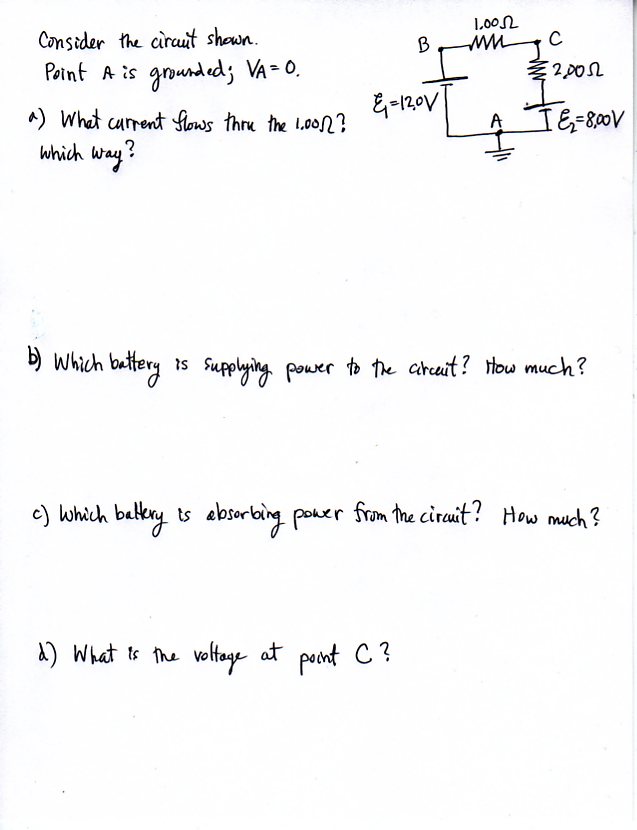 Consider the circuit shown.
Point A is grounded; VA = 0.
a) What current flows thru the 1.00Ω?
Which way?
B
1.00Ω
C
2.00Ω
ℰ₁=12.0V
A
ℰ₂=8.00V
b) Which battery is supplying power to the circuit? How much?
c) Which battery is absorbing power from the circuit? How much?
d) What is the voltage at point C?